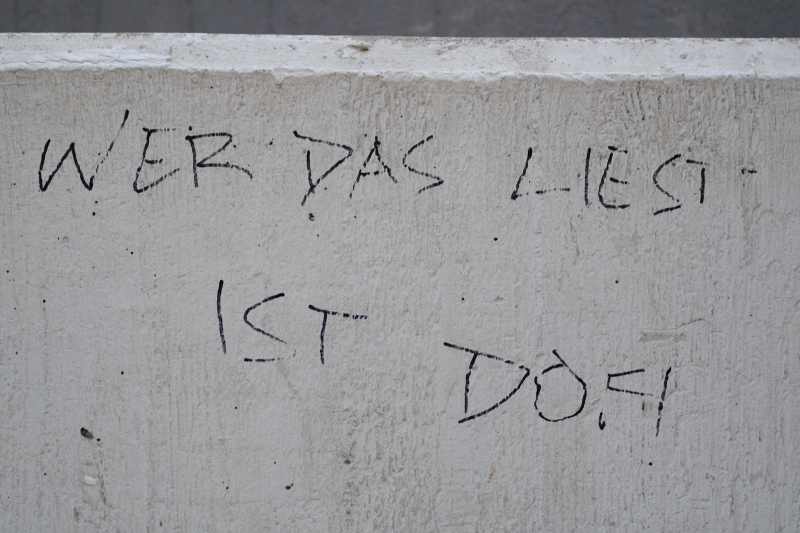 WER DAS LIEST -
IST DOF